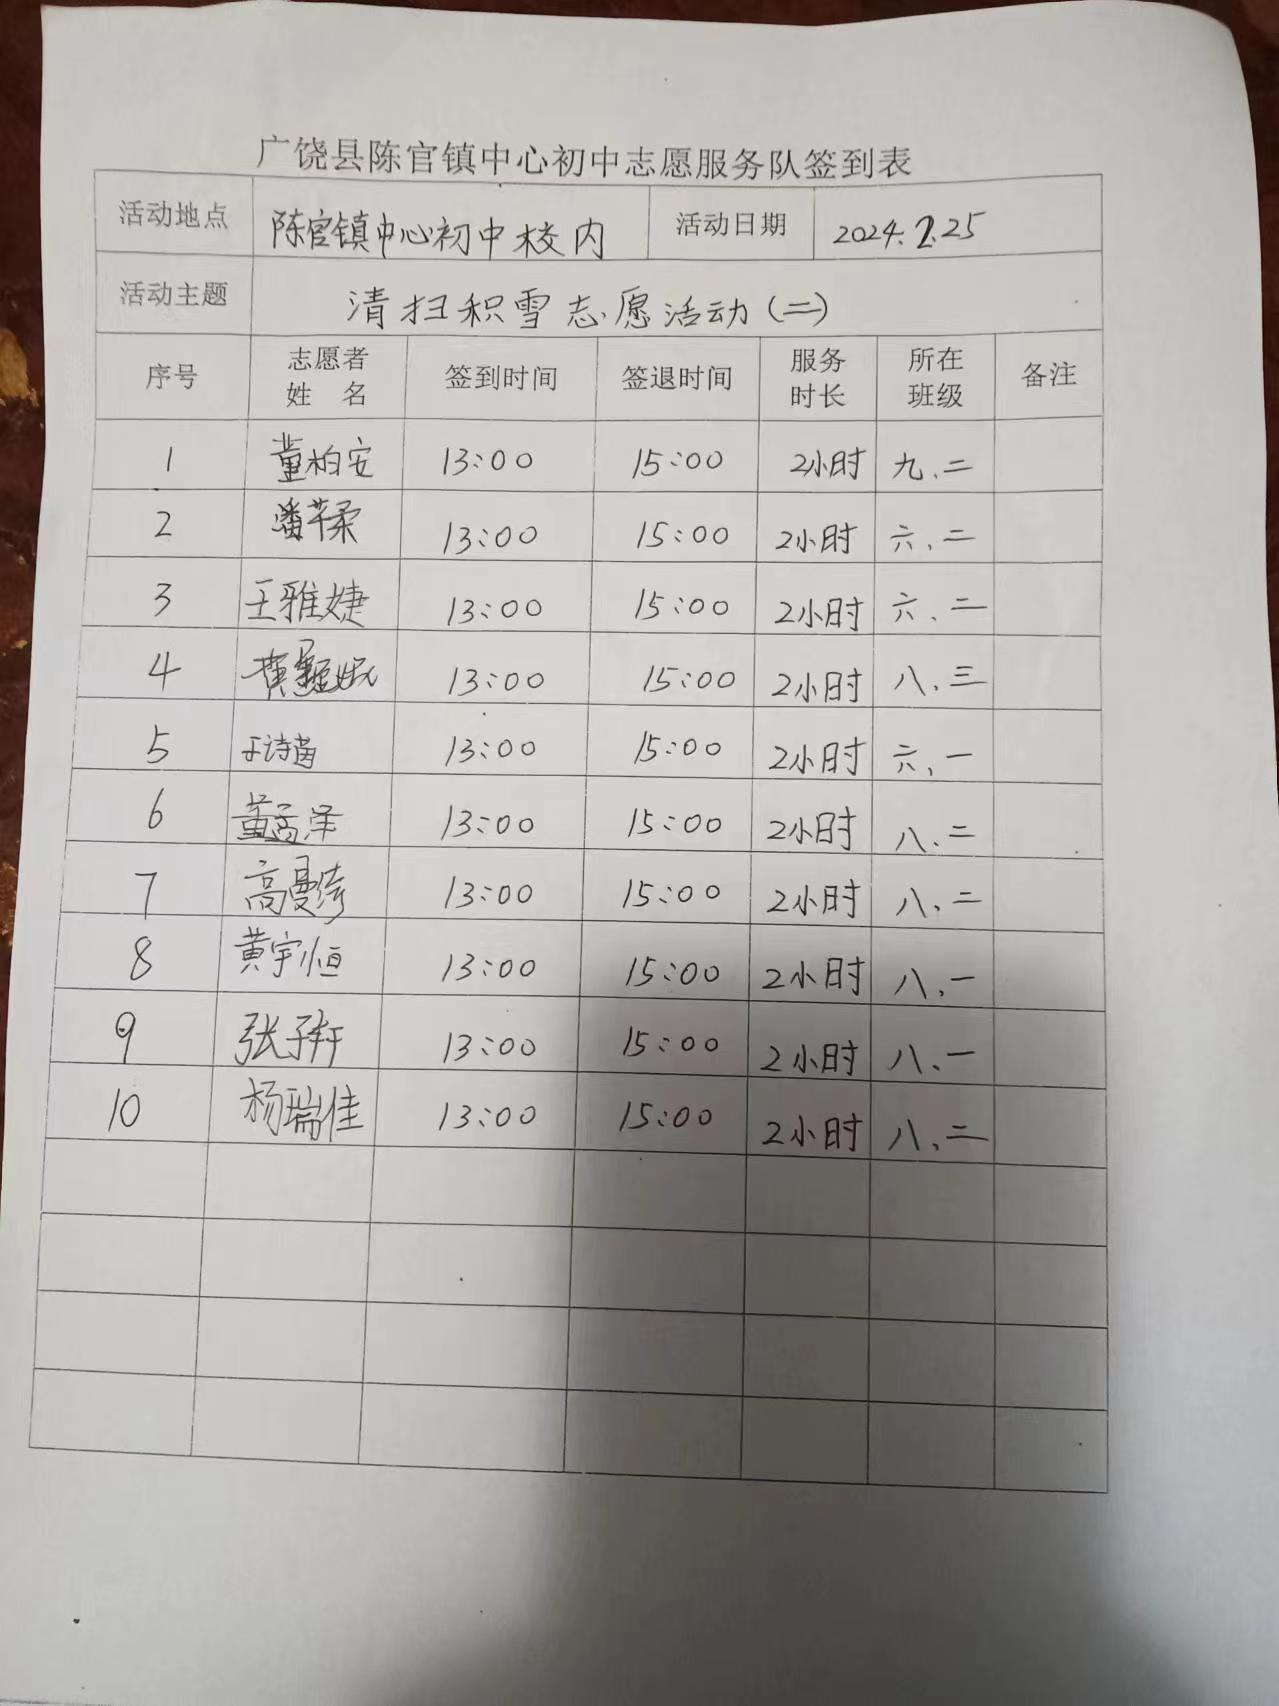 广饶县陈官镇中心初中志愿服务队签到表
活动地点 陈官镇中心初中校内 活动日期 2024.2.25
活动主题 清扫积雪志愿活动(二)
序号 志愿者姓名 签到时间 签退时间 服务时长 所在班级 备注
1 董柏安 13:00 15:00 2小时 九、二
2 潘芊柔 13:00 15:00 2小时 六、二
3 王雅婕 13:00 15:00 2小时 六、二
4 黄 13:00 15:00 2小时 八、三
5 王诗茵 13:00 15:00 2小时 六、一
6 董孟泽 13:00 15:00 2小时 八、二
7 高曼绮 13:00 15:00 2小时 八、二
8 黄宇恒 13:00 15:00 2小时 八、一
9 张子轩 13:00 15:00 2小时 八、一
10 杨瑞佳 13:00 15:00 2小时 八、二